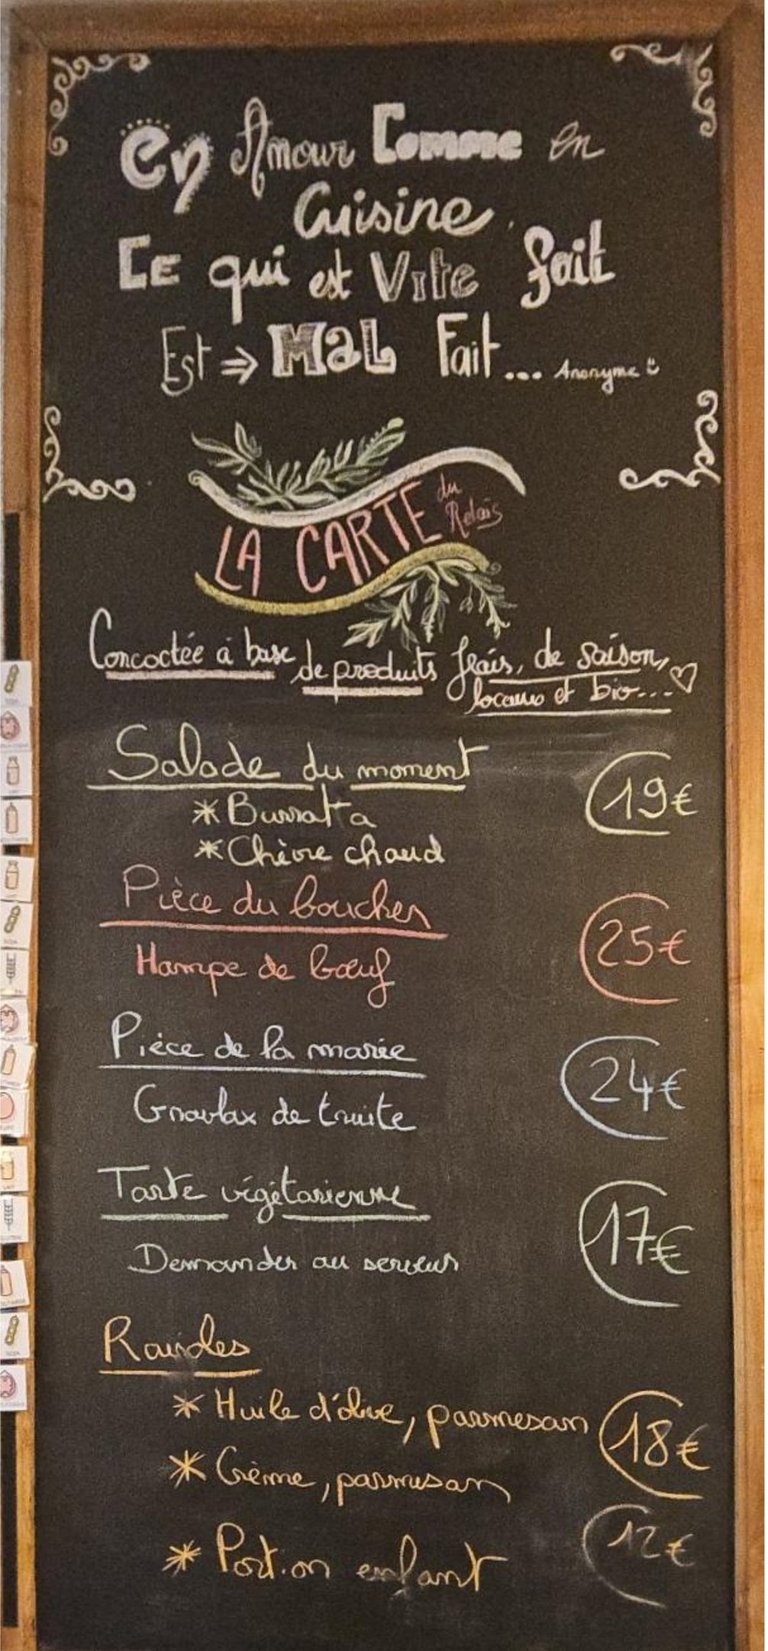 en Amour Comme en
Cuisine
CE qui est Vite fait
Est ⇒ MaL Fait... Anonyme
LA CARTE du Relais
Concoctée à base de produits frais, de saison,
locaux et bio...
Salade du moment 19€
* Burrata
* Chèvre chaud
Pièce du boucher 25€
Hampe de bœuf
Pièce de la marée 24€
Gravlax de truite
Tarte végétarienne 17€
Demander au serveur
Ravioles
* Huile d'olive, parmesan 18€
* Crème, parmesan
* Portion enfant 12€